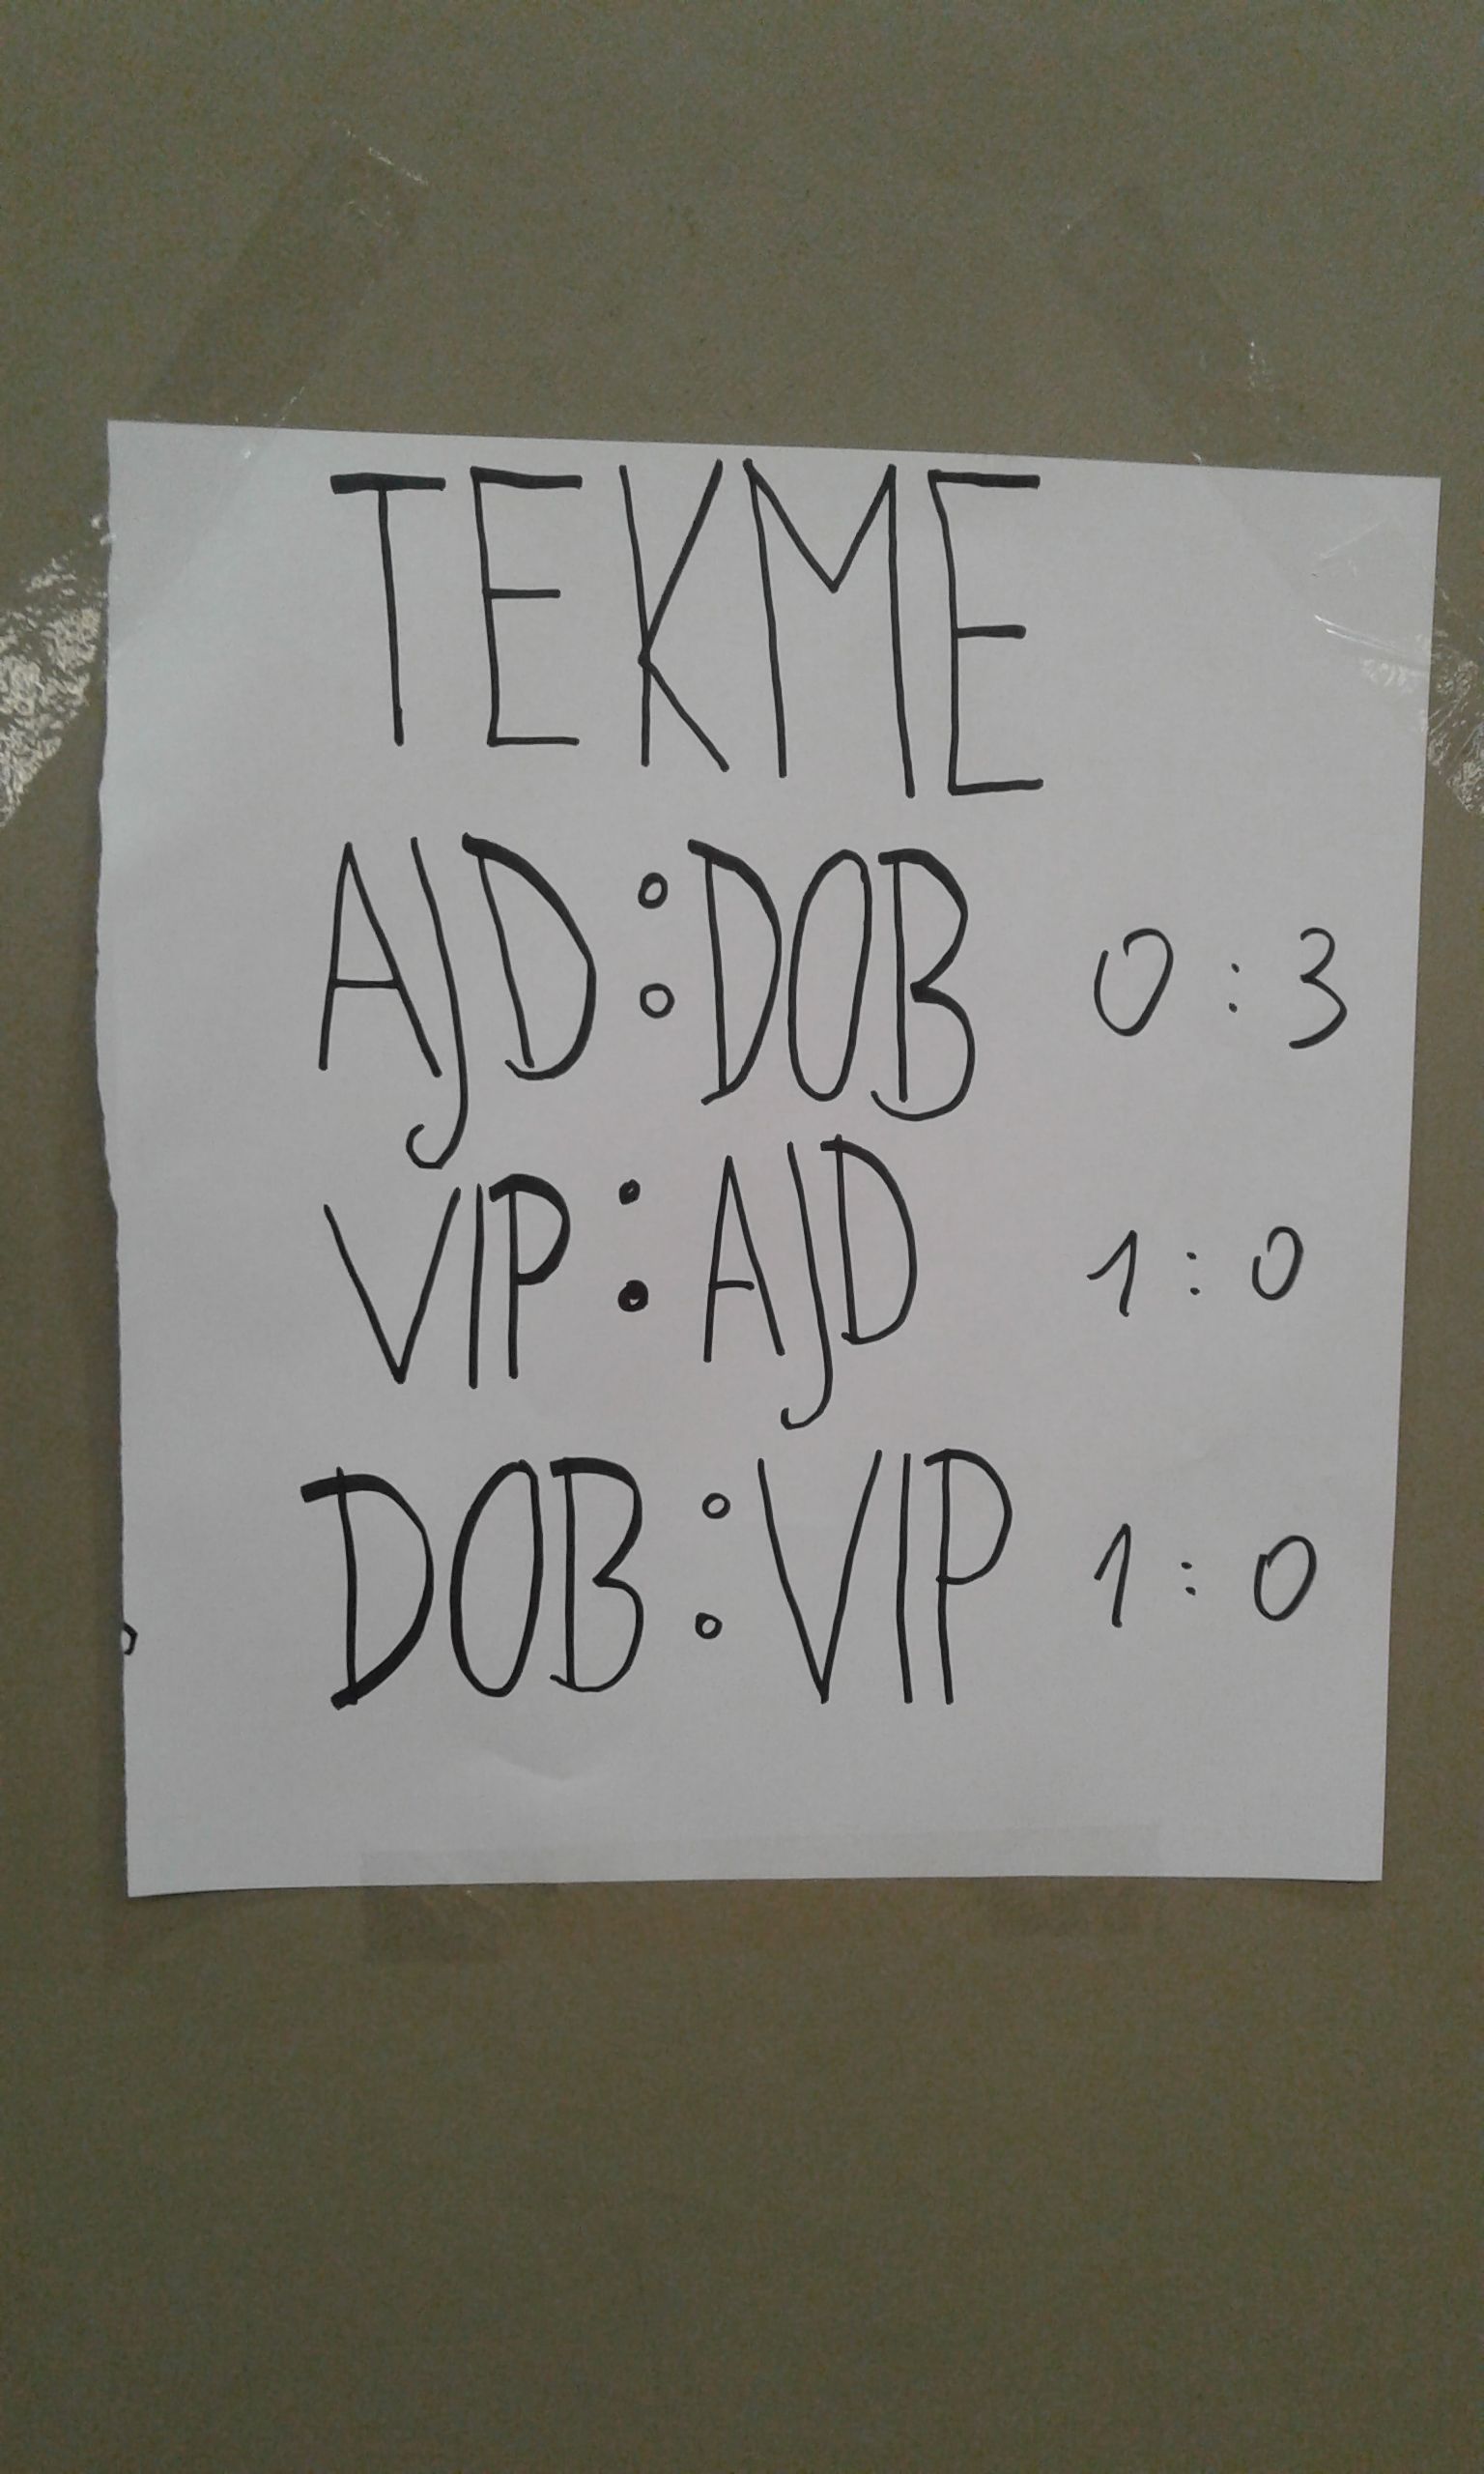 TEKME
AJD:DOB 0:3
VIP:AJD 1:0
DOB:VIP 1:0